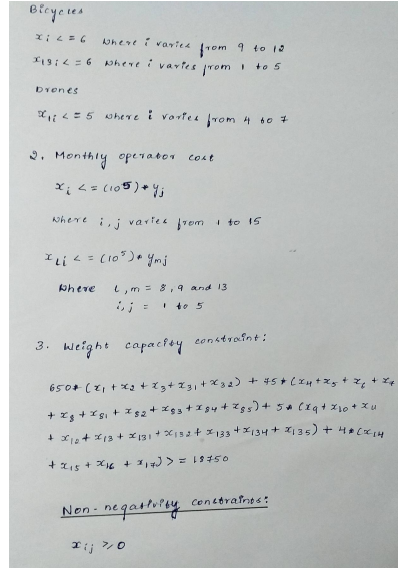 Bicycles
xi <= 6 where i varies from 9 to 12
x13i <= 6 where i varies from 1 to 5
Drones
x1i <= 5 where i varies from 4 to 7
2. Monthly operator cost
xi <= (10^5)*yj
where i,j varies from 1 to 15
xLi <= (10^5)*ymj
where l,m = 8,9 and 13
i,j = 1 to 5
3. Weight capacity constraint:
650*(x1+x2+x3+x31+x32) + 75*(x4+x5+x6+x7
+x8+x81+x82+x83+x84+x85)+5*(x9+x10+x11
+x12+x13+x131+x132+x133+x134+x135)+4*(x14
+x15+x16+x17)>=18750
Non-negativity constraints:
xij ≥ 0